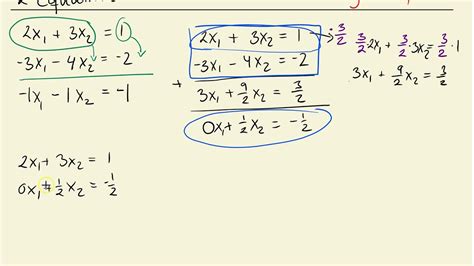 2x₁ + 3x₂ = 1
-3x₁ - 4x₂ = -2
-1x₁ - 1x₂ = -1
2x₁ + 3x₂ = 1
-3x₁ - 4x₂ = -2
+ 3x₁ + 9/2 x₂ = 3/2
0x₁ + 1/2 x₂ = -1/2
·3/2
3/2 · 2x₁ + 3/2 · 3x₂ = 3/2 · 1
3x₁ + 9/2 x₂ = 3/2
2x₁ + 3x₂ = 1
0x₁ + 1/2 x₂ = -1/2